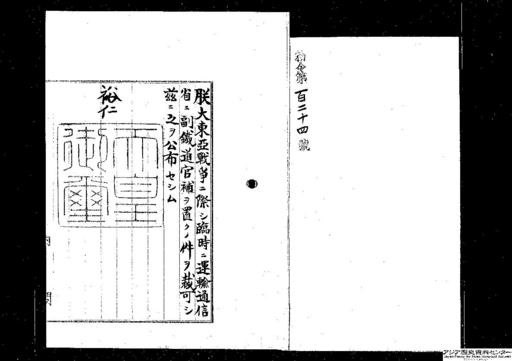 勅令第百二十四號
朕大東亞戰爭ニ際シ臨時ニ運輸通信
省ニ副鐵道官補ヲ置クノ件ヲ裁可シ
茲ニ之ヲ公布セシム
裕仁
天皇
御璽
内閣
アジア歴史資料センター